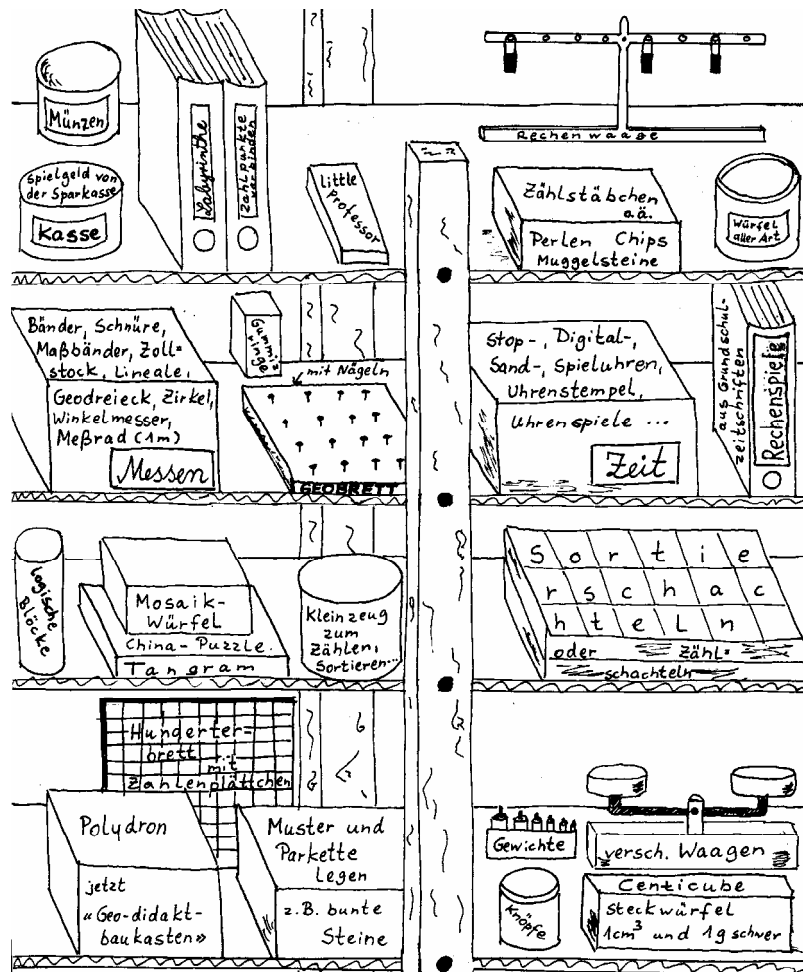 Münzen
Spielgeld von
der Sparkasse
Kasse
Labyrinthe
Zahlpunkte
verbinden
little
professor
Rechenwaage
Zählstäbchen
o.ä.
Perlen Chips
Muggelsteine
Würfel
aller Art
Bänder, Schnüre,
Maßbänder, Zoll=
stock, Lineale,
Geodreieck, Zirkel,
Winkelmesser,
Meßrad (1m)
Messen
Gummi=
ringe
mit Nägeln
GEOBRETT
Stop-, Digital-,
Sand-, Spieluhren,
Uhrenstempel,
Uhrenspiele ...
Zeit
aus Grundschul-
zeitschriften
Rechenspiele
logische
Blöcke
Mosaik-
Würfel
China-Puzzle
Tangram
Kleinzeug
zum
Zählen,
Sortieren...
Sortie
rschac
hteln
oder Zähl=
schachteln
Hunderter=
brett
mit
Zahlenplättchen
Polydron
jetzt
«Geo-didakt-
baukasten»
Muster und
Parkette
legen
z.B. bunte
Steine
Gewichte
versch. Waagen
Knöpfe
Centicube
Steckwürfel
1cm³ und 1g schwer